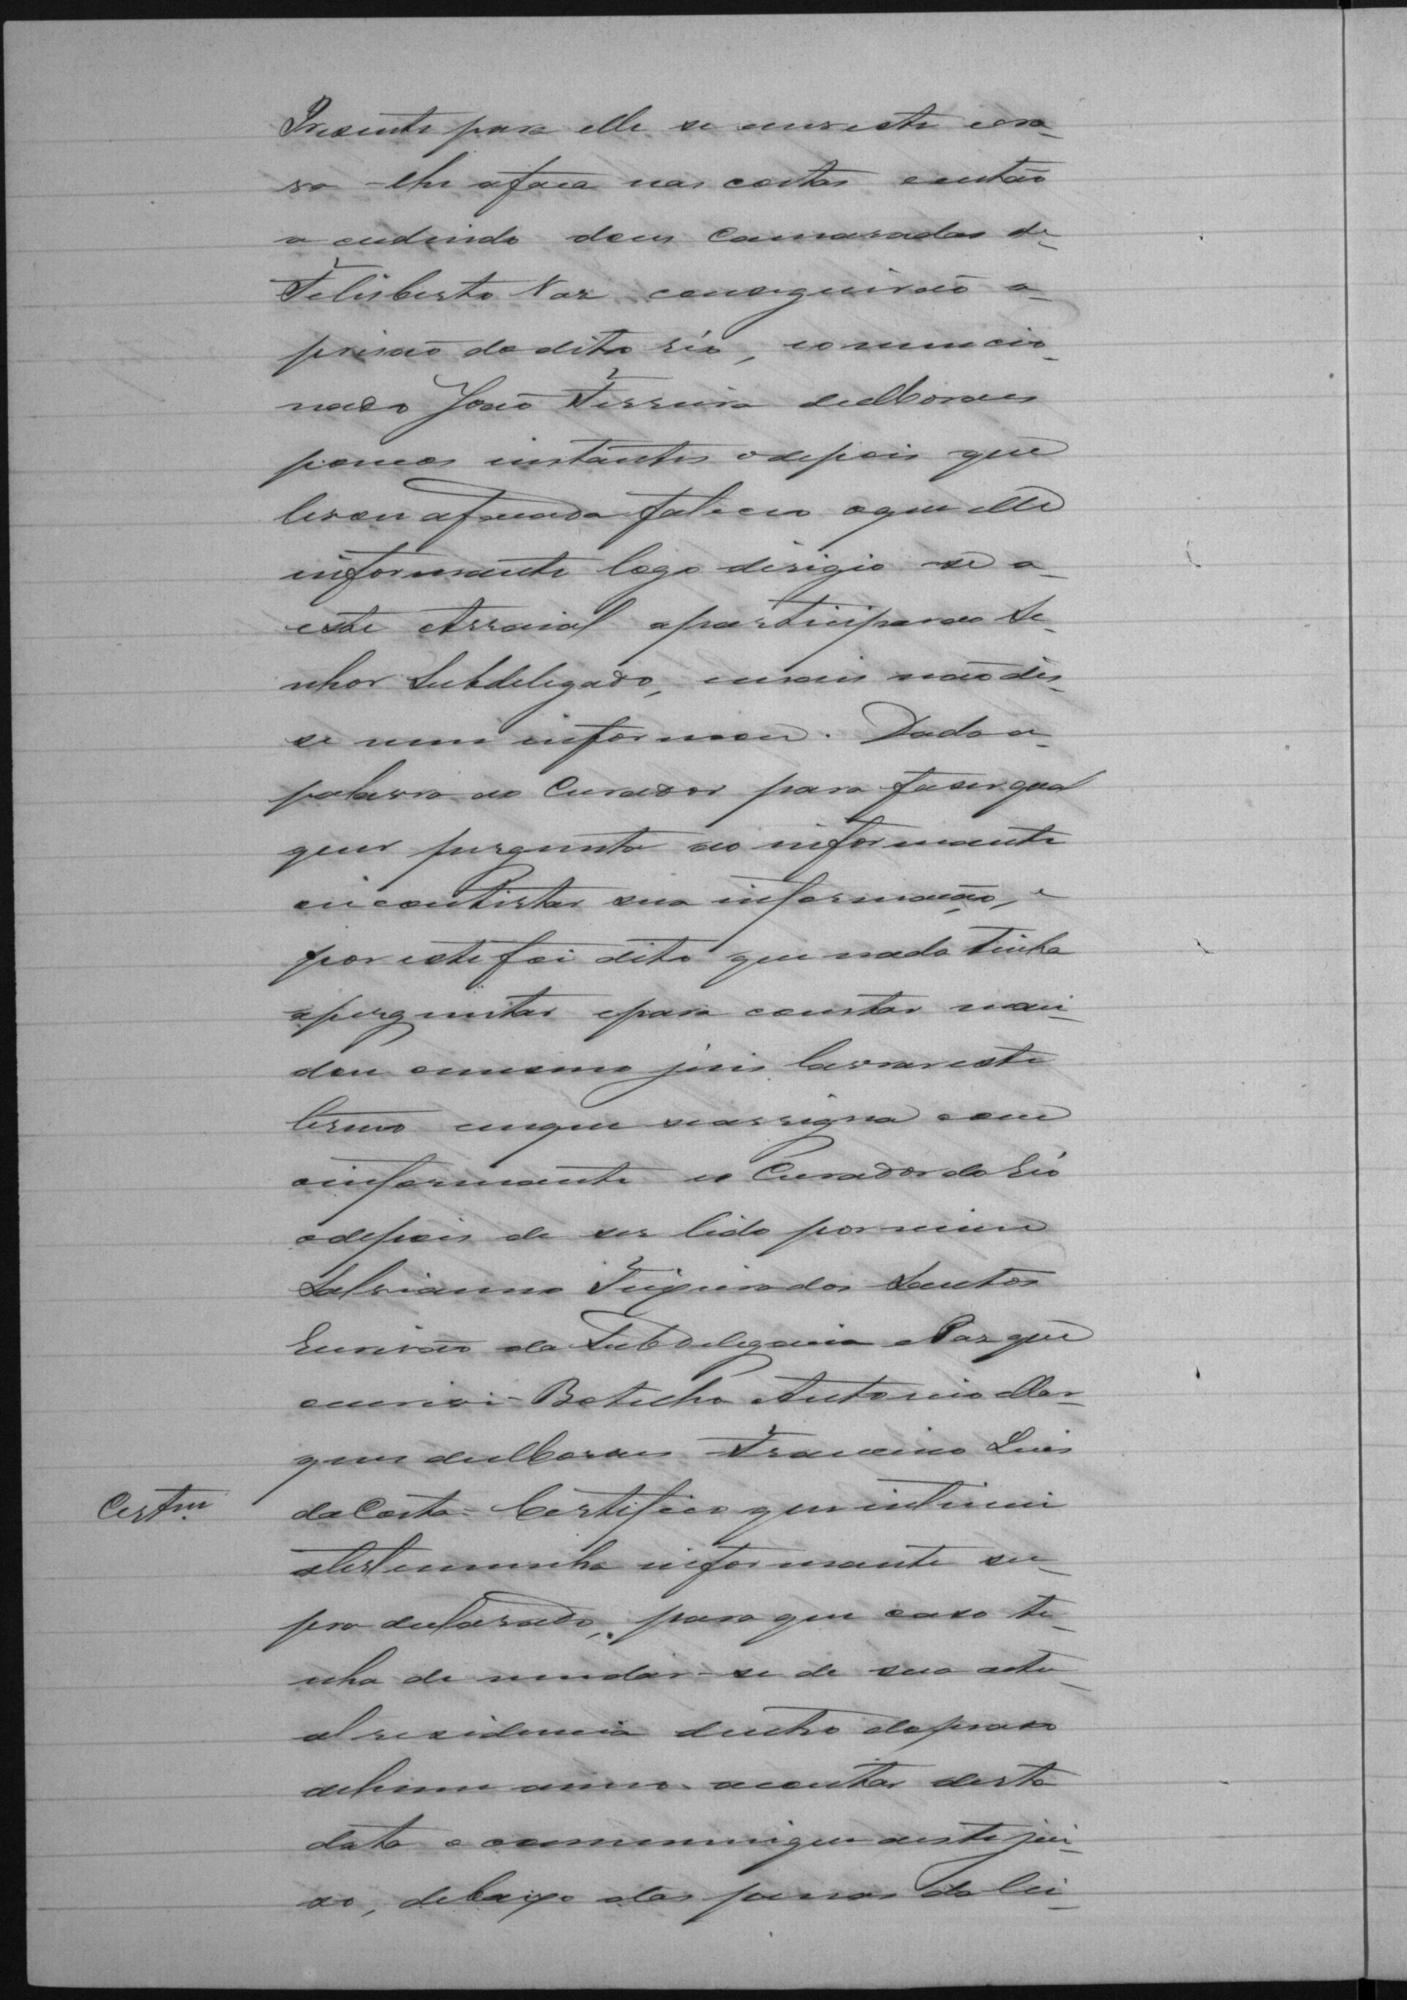 Presente para elle se meresti cra-
va-lhe afaca nas costas então
acudindo dous Camaradas de
Felisberto Vaz conseguirão a
prisão do dito réo, comuncio-
nado João Ferreira de Moraes
poucos instantes odepois que
levou afacada faleceu aquelle
informante logo dirigio se a
este Arraial aparticipar ao Se-
nhor Subdelegado, emais não dis-
se nem informou. Dado a
palavra ao Curador para fazer qual
quer pergunta ao informante
ou contistar sua informação, e
por este foi dito que nada tinha
aperguntar epara constar man-
dou omesmo juis lavrar este
termo emque seassigna com
oinformante eo Curador do réo
odepois de ser lido por mim
Salvianno Teixeira dos Santos
Escrivão da Subdelegacia ePaz que
escrivi - Botelho Antonio Mar-
ques de Moraes Francisco Luis
Certm.
da Costa - Certifico que intimei
atestemunha informante su-
pra declarado, para que caso te-
nha de mudar-se de sua actu-
al residencia dentro do praso
dehum anno acontar desta
data o communique aeste jui-
zo, debaixo das pennas da lei-